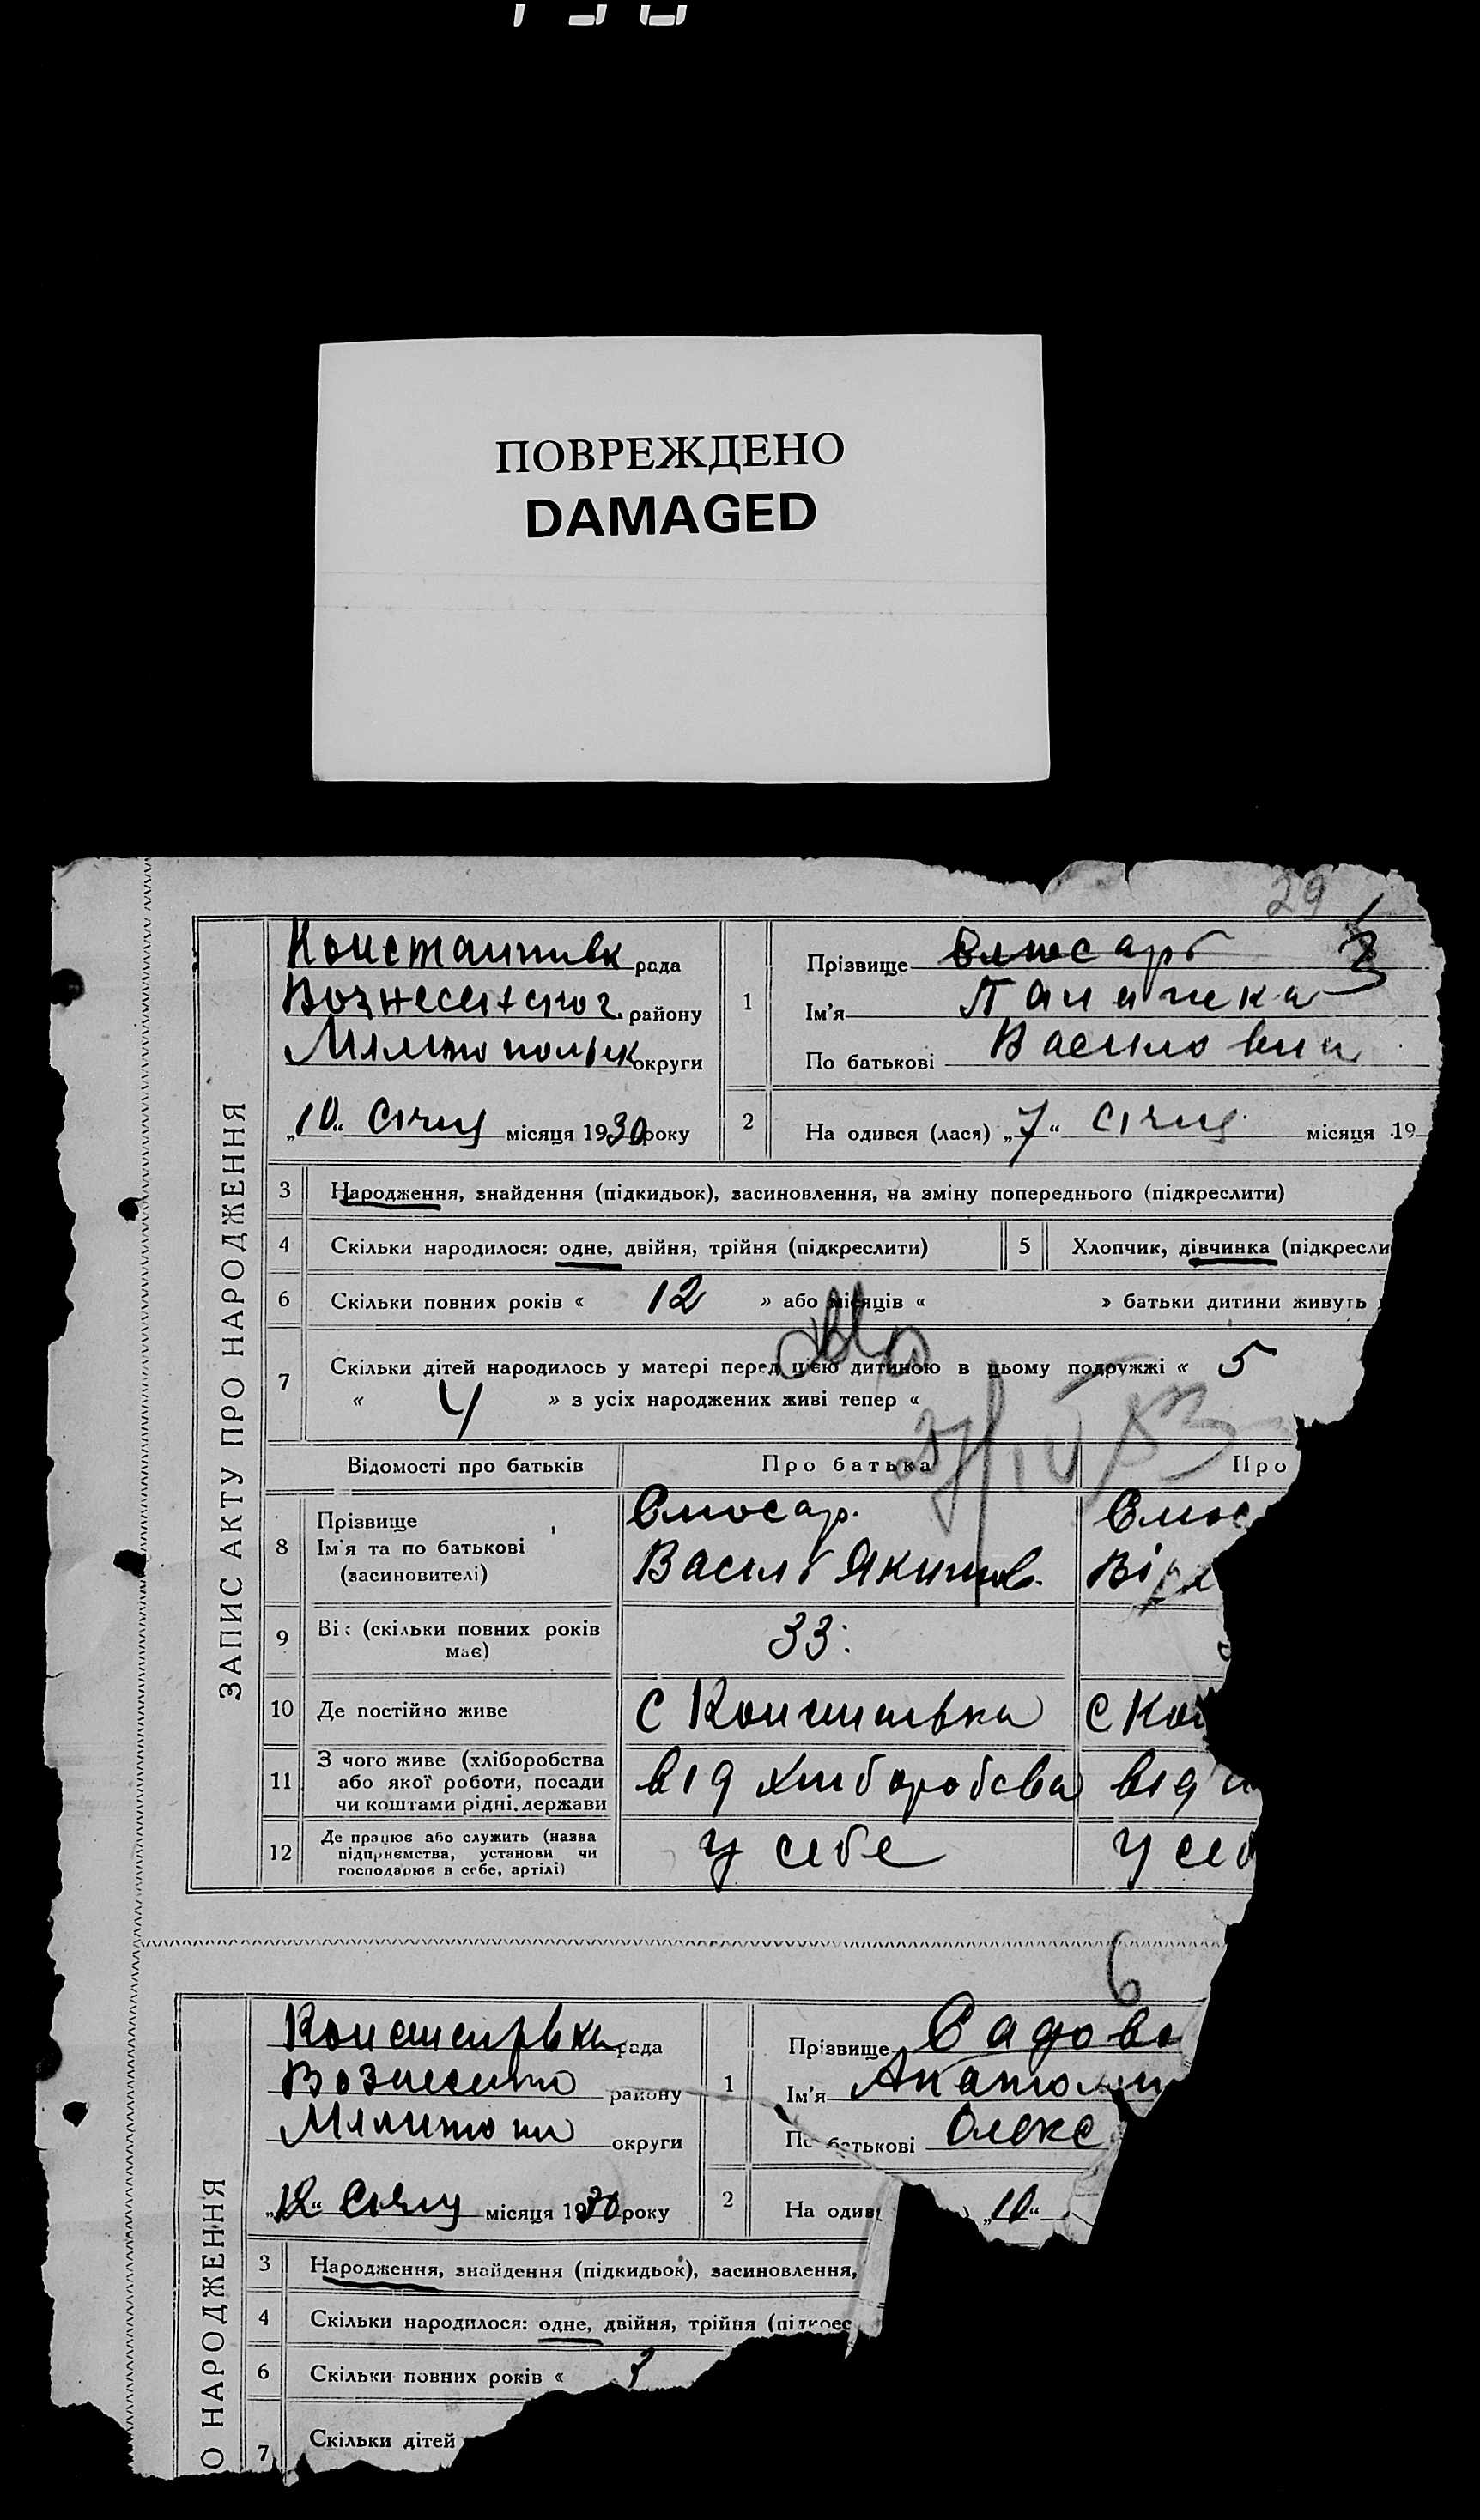 ПОВРЕЖДЕНО
DAMAGED
29
ЗАПИС АКТУ ПРО НАРОДЖЕННЯ
рада
району
округи
„10“ січня місяця 1930 року
1
Прізвище Слюсарь
Ім'я
По батькові
2
На одився (лася) „7“ січня місяця 19
3 Народження, знайдення (підкидьок), засиновлення, на зміну попереднього (підкреслити)
4 Скільки народилося: одне, двійня, трійня (підкреслити)
5 Хлопчик, дівчинка (підкресли
6 Скільки повних років « 12 » або місяців « » батьки дитини живуть
7 Скільки дітей народилось у матері перед цією дитиною в цьому подружжі « 5
« 4 » з усіх народжених живі тепер «
Відомості про батьків
Про батька
Про
8 Прізвище
Ім'я та по батькові
(засиновителі)
Слюсар.
Василь Якимов.
Слюс
9 Вік (скільки повних років має)
33
10 Де постійно живе
С Константівка
С Кон
11 З чого живе (хліборобства
або якої роботи, посади
чи коштами рідні. держави
від хліборобства
від
12 Де працює або служить (назва
підприємства, установи чи
господарює в себе, артілі)
у себе
у себ
6
О НАРОДЖЕННЯ
рада
району
округи
„12“ Січня місяця 1930 року
1
Прізвище Садов
Ім'я Анатолі
По батькові Олекс
2
На одив „10“
3 Народження, знайдення (підкидьок), засиновлення,
4 Скільки народилося: одне, двійня, трійня (підкрес
6 Скільки повних років «
7 Скільки дітей